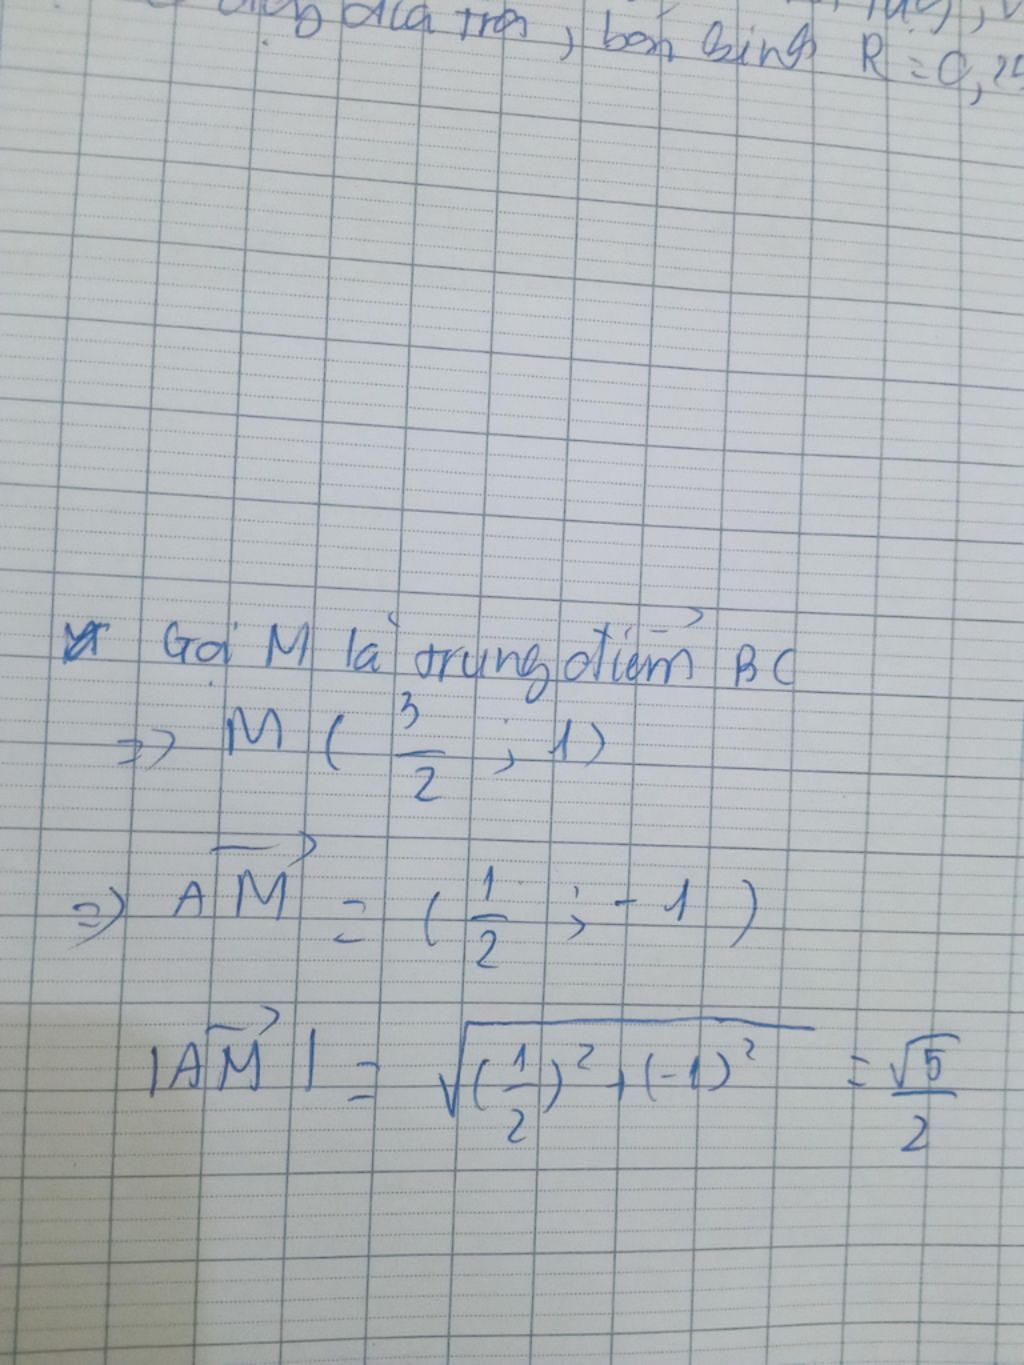 dĩa tròn, bán kính R = 0,25
Gọi M là trung điểm BC
=> M ( 3/2 ; 1)
=> AM = ( 1/2 ; -1 )
|AM| = √(1/2)² + (-1)² = √5/2